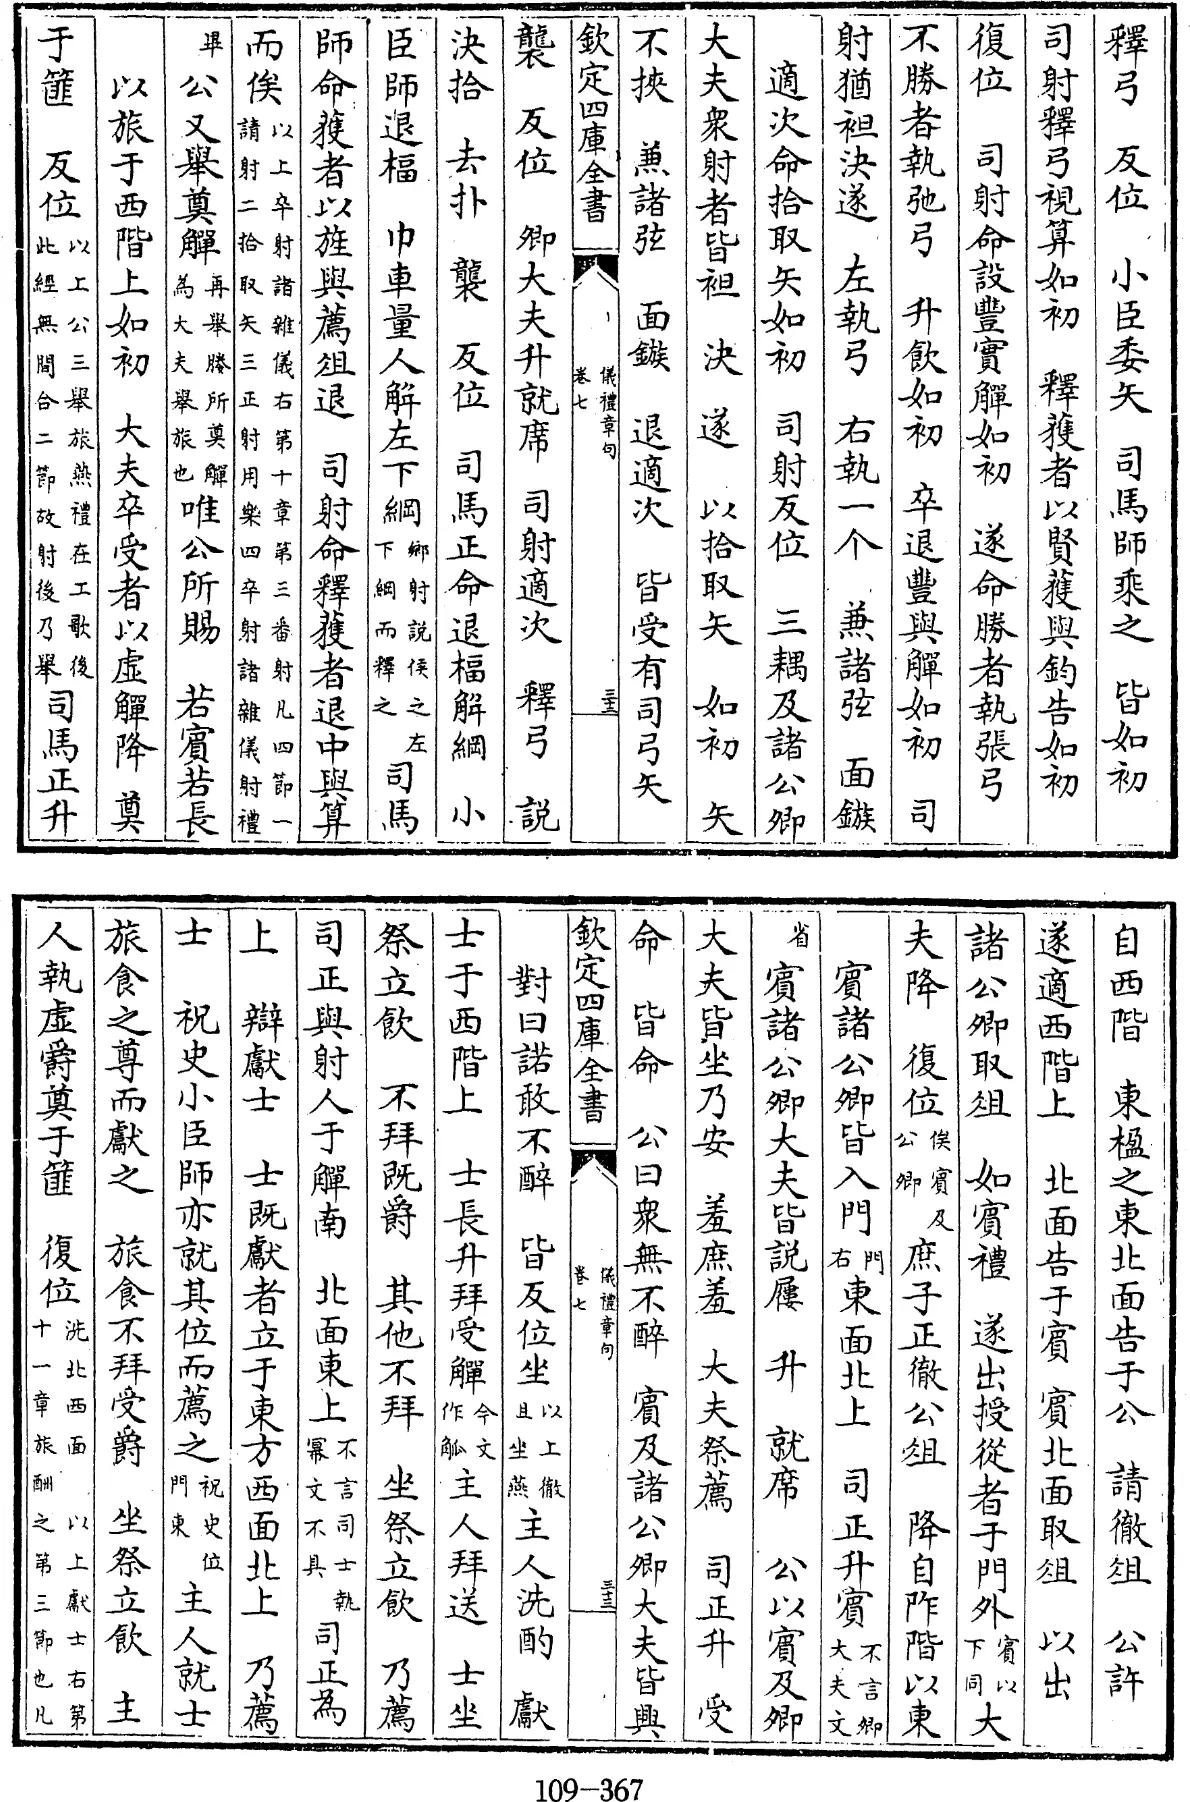 釋弓　反位　小臣委矢　司馬師乘之　皆如初
司射釋弓視算如初　釋獲者以賢獲與鈞告如初
復位　司射命設豐實觶如初　遂命勝者執張弓
不勝者執弛弓　升飲如初　卒退豐與觶如初　司
射猶袒決遂　左執弓　右執一个　兼諸弦　面鏃
適次命拾取矢如初　司射反位　三耦及諸公卿
大夫衆射者皆袒　決　遂　以拾取矢　如初　矢
不挾　兼諸弦　面鏃　退適次　皆受有司弓矢
欽定四庫全書　儀禮章句　卷七　三十二
襲　反位　卿大夫升就席　司射適次　釋弓　説
決拾　去扑　襲　反位　司馬正命退楅解綱　小
臣師退楅　巾車量人解左下綱鄉射説侯之左下綱而釋之司馬
師命獲者以旌與薦俎退　司射命釋獲者退中與算
而俟以上卒射諸雜儀右第十章第三番射凡四節一請射二拾取矢三正射用樂四卒射諸雜儀射禮
畢　公又舉奠觶再舉勝所奠觶為大夫舉旅也唯公所賜　若賓若長
以旅于西階上如初　大夫卒受者以虛觶降　奠
于篚　反位以上公三舉旅燕禮在工歌後此經無間合二節故射後乃舉司馬正升
自西階　東楹之東北面告于公　請徹俎　公許
遂適西階上　北面告于賓　賓北面取俎　以出
諸公卿取俎　如賓禮　遂出授從者于門外賓以下同大
夫降　復位俟賓及公卿庶子正徹公俎　降自阼階以東
賓諸公卿皆入門門右東面北上　司正升賓不言卿大夫文
省　賓諸公卿大夫皆説屨　升　就席　公以賓及卿
大夫皆坐乃安　羞庶羞　大夫祭薦　司正升　受
命　皆命　公曰衆無不醉　賓及諸公卿大夫皆興
欽定四庫全書　儀禮章句　卷七　三十三
對曰諾敢不醉　皆反位坐以上徹且坐燕主人洗酌　獻
士于西階上　士長升拜受觶今文作觚主人拜送　士坐
祭立飲　不拜既爵　其他不拜　坐祭立飲　乃薦
司正與射人于觶南　北面東上不言司士執冪文不具司正為
上　辯獻士　士既獻者立于東方西面北上　乃薦
士　祝史小臣師亦就其位而薦之祝史位門東主人就士
旅食之尊而獻之　旅食不拜受爵　坐祭立飲　主
人執虛爵奠于篚　復位洗北西面　以上獻士右第十一章旅酬之第三節也凡
109–367